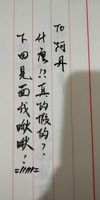 TO 阿丹
什麼!?真的假的?
下回見面我瞅瞅!